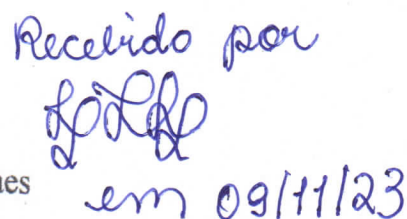 Recebido por
es
em 09/11/23